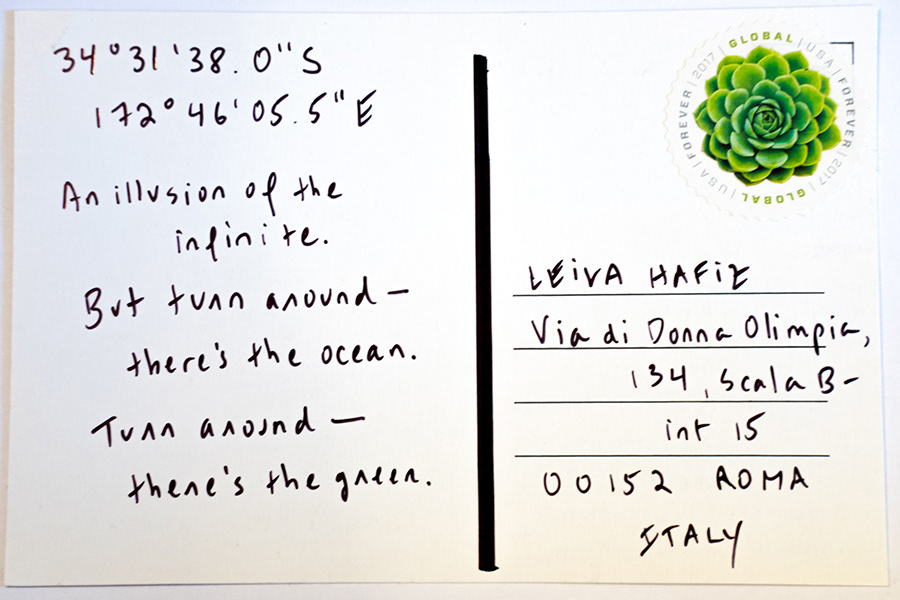 34°31'38.0"S
172°46'05.5"E
An illusion of the
infinite.
But turn around—
there's the ocean.
Turn around—
there's the green.
GLOBAL | USA | FOREVER | 2017 | GLOBAL | USA | FOREVER | 2017
LEIVA HAFIZ
Via di Donna Olimpia,
134, Scala B-
int 15
00152 ROMA
ITALY